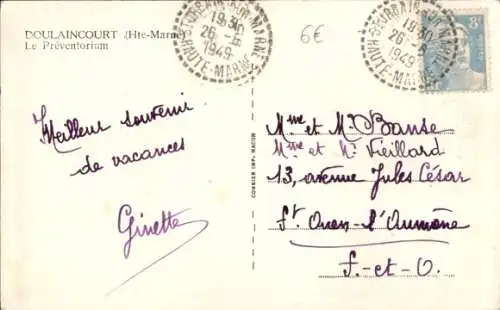 DOULAINCOURT (Hte-Marne)
Le Préventorium
19H30
26-8
1949
HAUTE-MARNE
6€
19H30
26-8
1949
HAUTE-MARNE
8F
Meilleur souvenir
de vacances
Ginette
Mme et Mr Banse
Mme et Mr Vieillard
13, avenue Jules César
St Ouen-l'Aumône
S.-et-O.